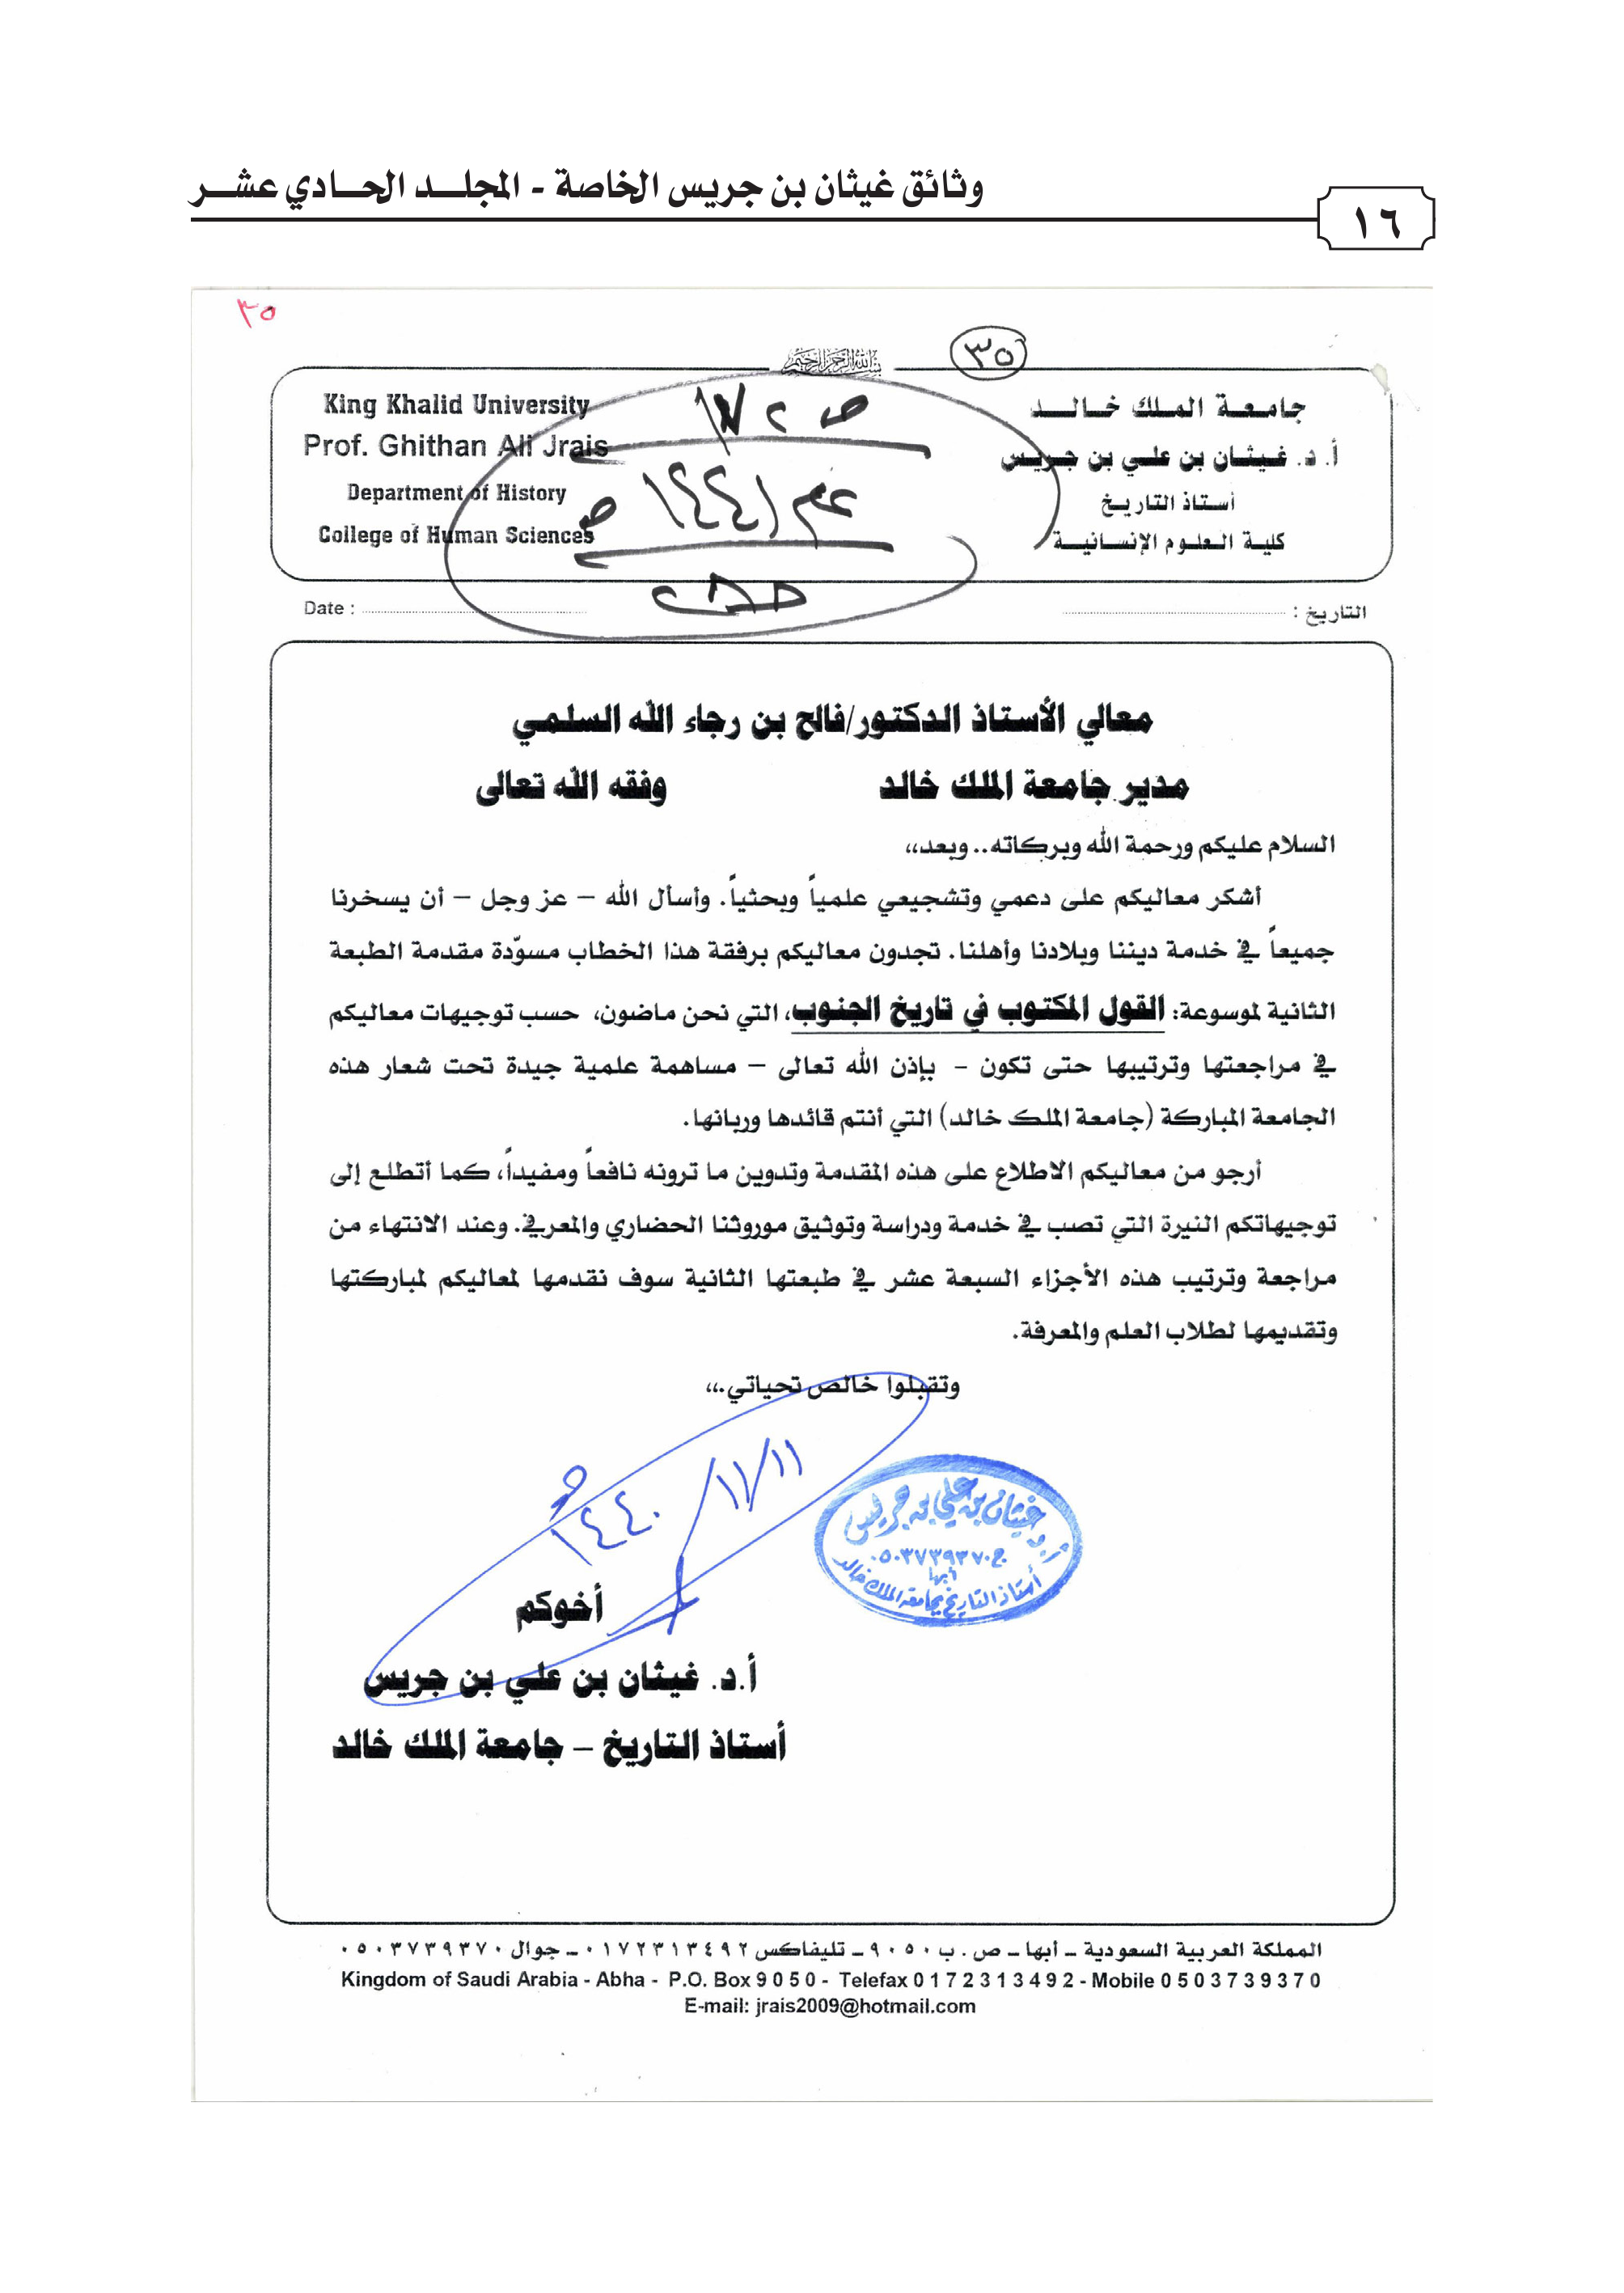 وثائق غيثان بن جريس الخاصة - المجلد الحادي عشر
١٦
٣٥
٣٥
بسم الله الرحمن الرحيم
جامعة الملك خالد
أ. د. غيثان بن علي بن جريس
أستاذ التاريخ
كلية العلوم الإنسانية
King Khalid University
Prof. Ghithan Ali Jrais
Department of History
College of Human Sciences
عام ١٤٤١ هـ
التاريخ :
Date :
معالي الأستاذ الدكتور/فالح بن رجاء الله السلمي
مدير جامعة الملك خالد وفقه الله تعالى
السلام عليكم ورحمة الله وبركاته.. وبعد،،
أشكر معاليكم على دعمي وتشجيعي علمياً وبحثياً. وأسأل الله – عز وجل – أن يسخرنا
جميعاً في خدمة ديننا وبلادنا وأهلنا. تجدون معاليكم برفقة هذا الخطاب مسوّدة مقدمة الطبعة
الثانية لموسوعة: القول المكتوب في تاريخ الجنوب، التي نحن ماضون، حسب توجيهات معاليكم
في مراجعتها وترتيبها حتى تكون - بإذن الله تعالى – مساهمة علمية جيدة تحت شعار هذه
الجامعة المباركة (جامعة الملك خالد) التي أنتم قائدها وربانها.
أرجو من معاليكم الاطلاع على هذه المقدمة وتدوين ما ترونه نافعاً ومفيداً، كما أتطلع إلى
توجيهاتكم النيرة التي تصب في خدمة ودراسة وتوثيق موروثنا الحضاري والمعرفي. وعند الانتهاء من
مراجعة وترتيب هذه الأجزاء السبعة عشر في طبعتها الثانية سوف نقدمها لمعاليكم لمباركتها
وتقديمها لطلاب العلم والمعرفة.
وتقبلوا خالص تحياتي.،،
١١/١١/١٤٤٠هـ
أ.د غيثان بن علي بن جريس
ج ٠٥٠٣٧٣٩٣٧٠
أبها
أستاذ التاريخ بجامعة الملك خالد
أخوكم
أ.د. غيثان بن علي بن جريس
أستاذ التاريخ – جامعة الملك خالد
المملكة العربية السعودية ـ أبها ـ ص . ب ٩٠٥٠ ـ تليفاكس ٠١٧٢٣١٣٤٩٢ ـ جوال ٠٥٠٣٧٣٩٣٧٠
Kingdom of Saudi Arabia - Abha - P.O. Box 9 0 5 0 - Telefax 0 1 7 2 3 1 3 4 9 2 - Mobile 0 5 0 3 7 3 9 3 7 0
E-mail: jrais2009@hotmail.com